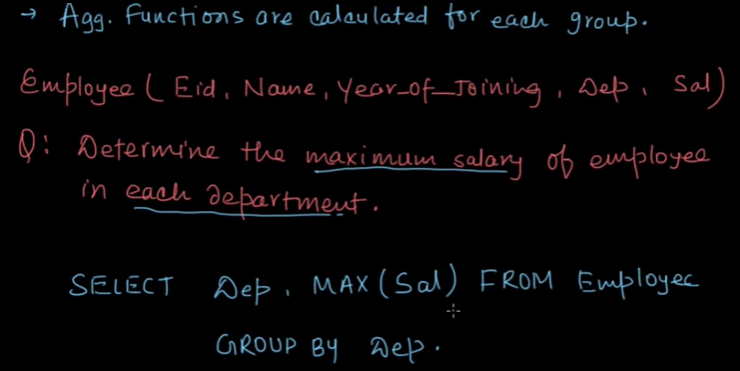 → Agg. Functions are calculated for each group.
Employee ( Eid, Name, Year_of_Joining, Dep, Sal)
Q: Determine the maximum salary of employee
in each department.
SELECT Dep, MAX(Sal) FROM Employee
GROUP BY Dep.